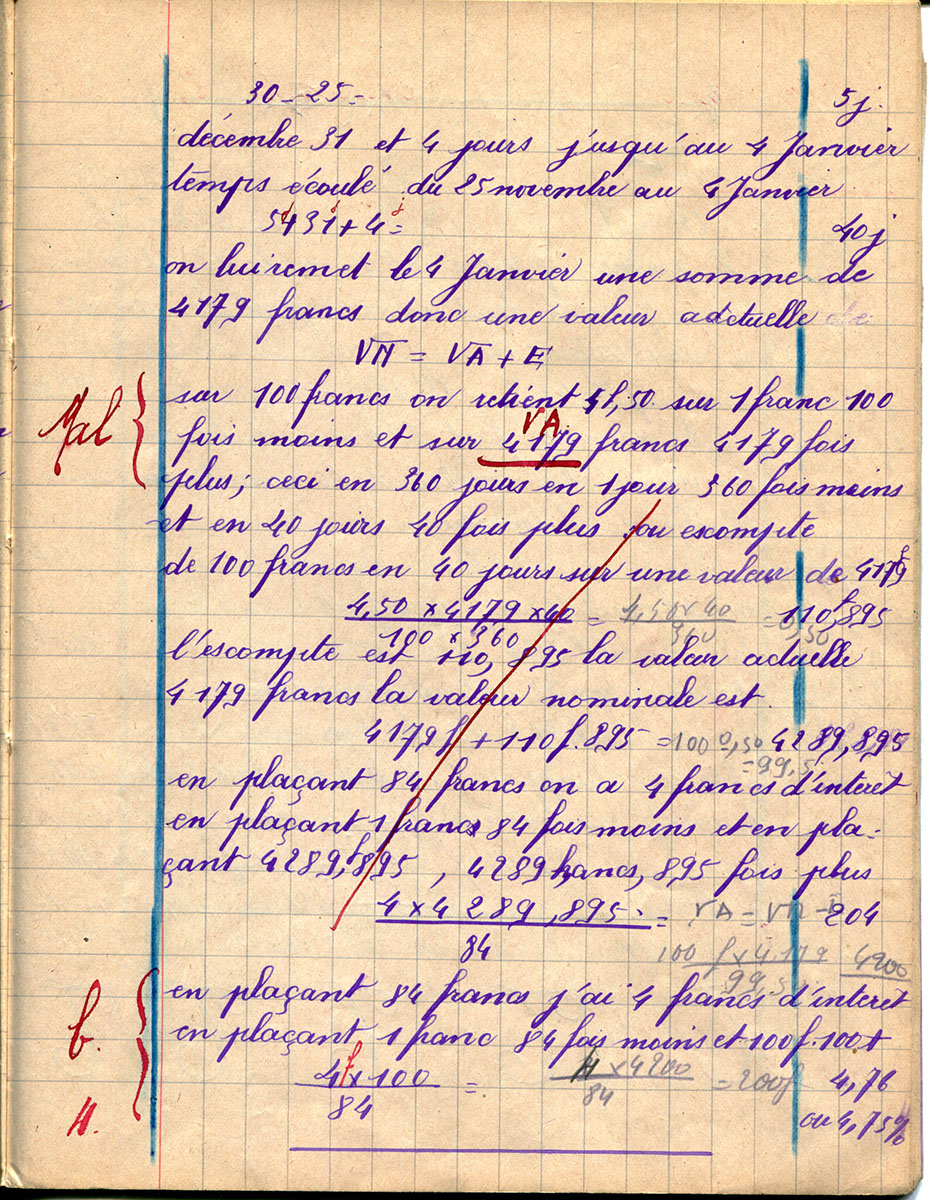 30 - 25 = 5j.
décembre 31 et 4 jours jusqu'au 4 Janvier
temps écoulé du 25 novembre au 4 Janvier
5 + 31 + 4 = 40j
on lui remet le 4 Janvier une somme de
4179 francs donc une valeur adctuelle de
VN = VA + E
Mal
sur 100 francs on retient 4f,50 sur 1 franc 100
VA
fois moins et sur 4179 francs 4179 fois
plus; ceci en 360 jours en 1 jour 360 fois moins
et en 40 jours 40 fois plus ou escompte
de 100 francs en 40 jours sur une valeur de 4179f
4,50 × 4179 × 40 = 4,50 × 40 = 110f,895
100 × 360 360 0,50
l'escompte est 110, 895 la valeur actuelle
4179 francs la valeur nominale est
4179f + 110f.895 = 100 0,50 4289,895
= 99,5
en plaçant 84 francs on a 4 francs d'intérêt
en plaçant 1 francs 84 fois moins et en pla-
çant 4289,f895, 4289 francs, 895 fois plus
4 × 4289,895 = VA = VN - E 204
84 100 f × 4179 4200
99,5
en plaçant 84 francs j'ai 4 francs d'interet
b.
en plaçant 1 franc 84 fois moins et 100f.100+
4f × 100 = 4 × 4200 = 200f 4,76
84 84
ou 4,75%